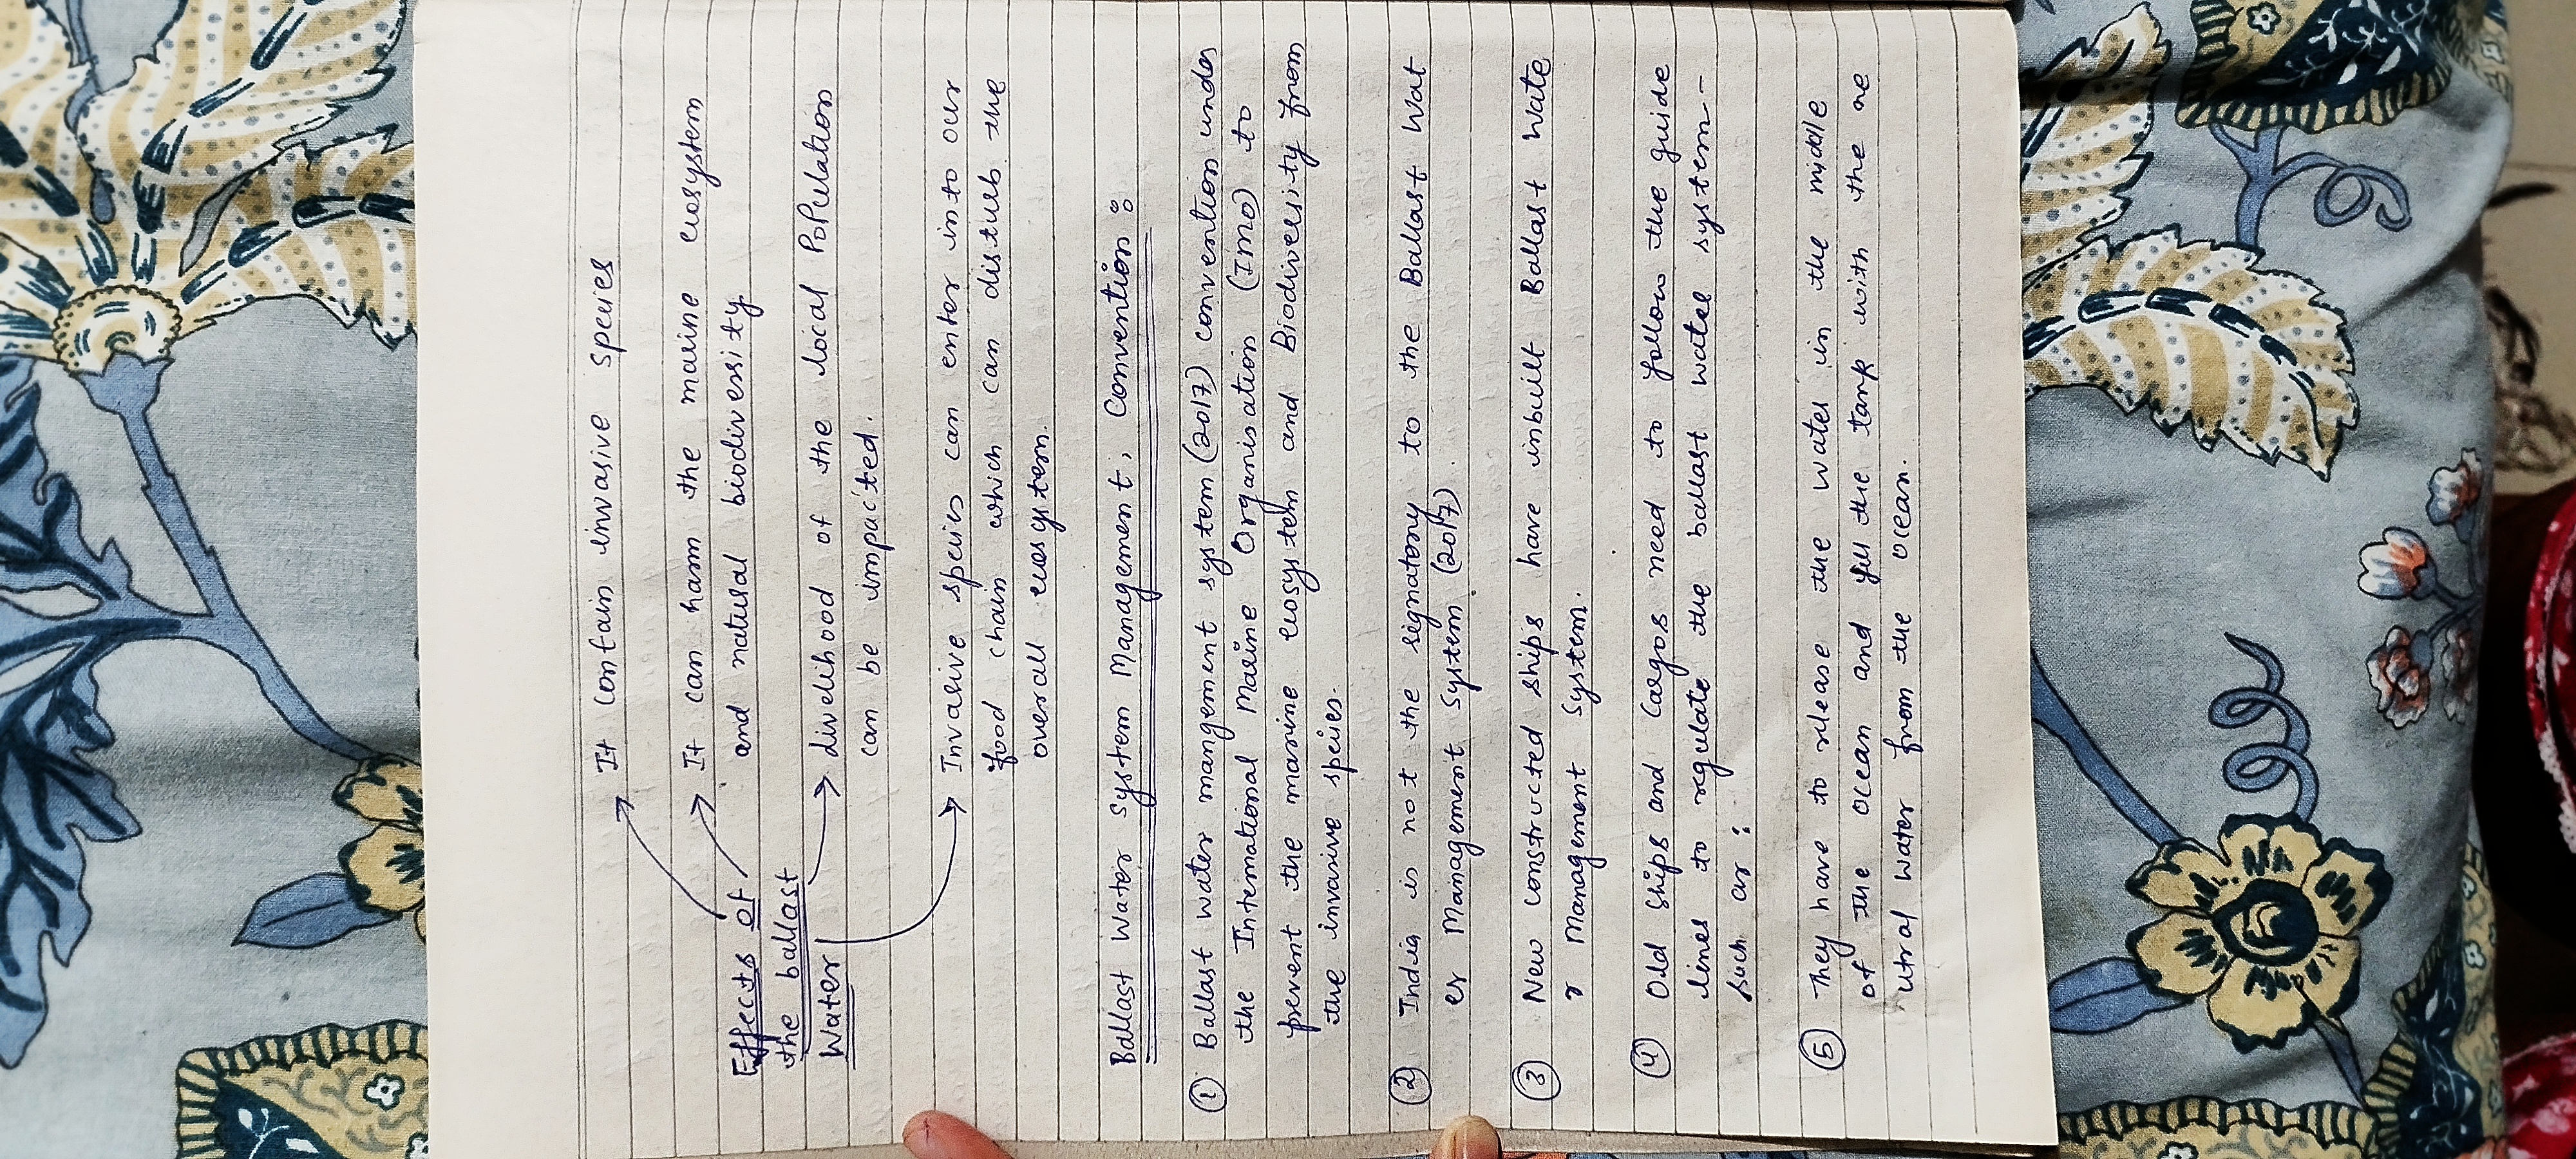 It contain invasive species
It can harm the marine ecosystem
and natural biodiversity
Effects of
the ballast
Water
livelihood of the local Population
can be impacted.
Invasive species can enter into our
food chain which can disturb the
overall ecosystem.
Ballast Water System Management, Convention :
① Ballast water mangement system (2017) convention under
the International Marine Organisation (IMO) to
prevent the marine ecosystem and Biodiversity from
the invasive species.
② India is not the signatory to the Ballast Wat
er Management System (2017).
③ New constructed ships have inbuilt Ballast Wate
r Management System.
④ Old ships and Cargos need to follow the guide
lines to regulate the ballast water system-
such as :
⑤ They have to release the water in the middle
of the ocean and fill the tank with the ne
utral water from the ocean.